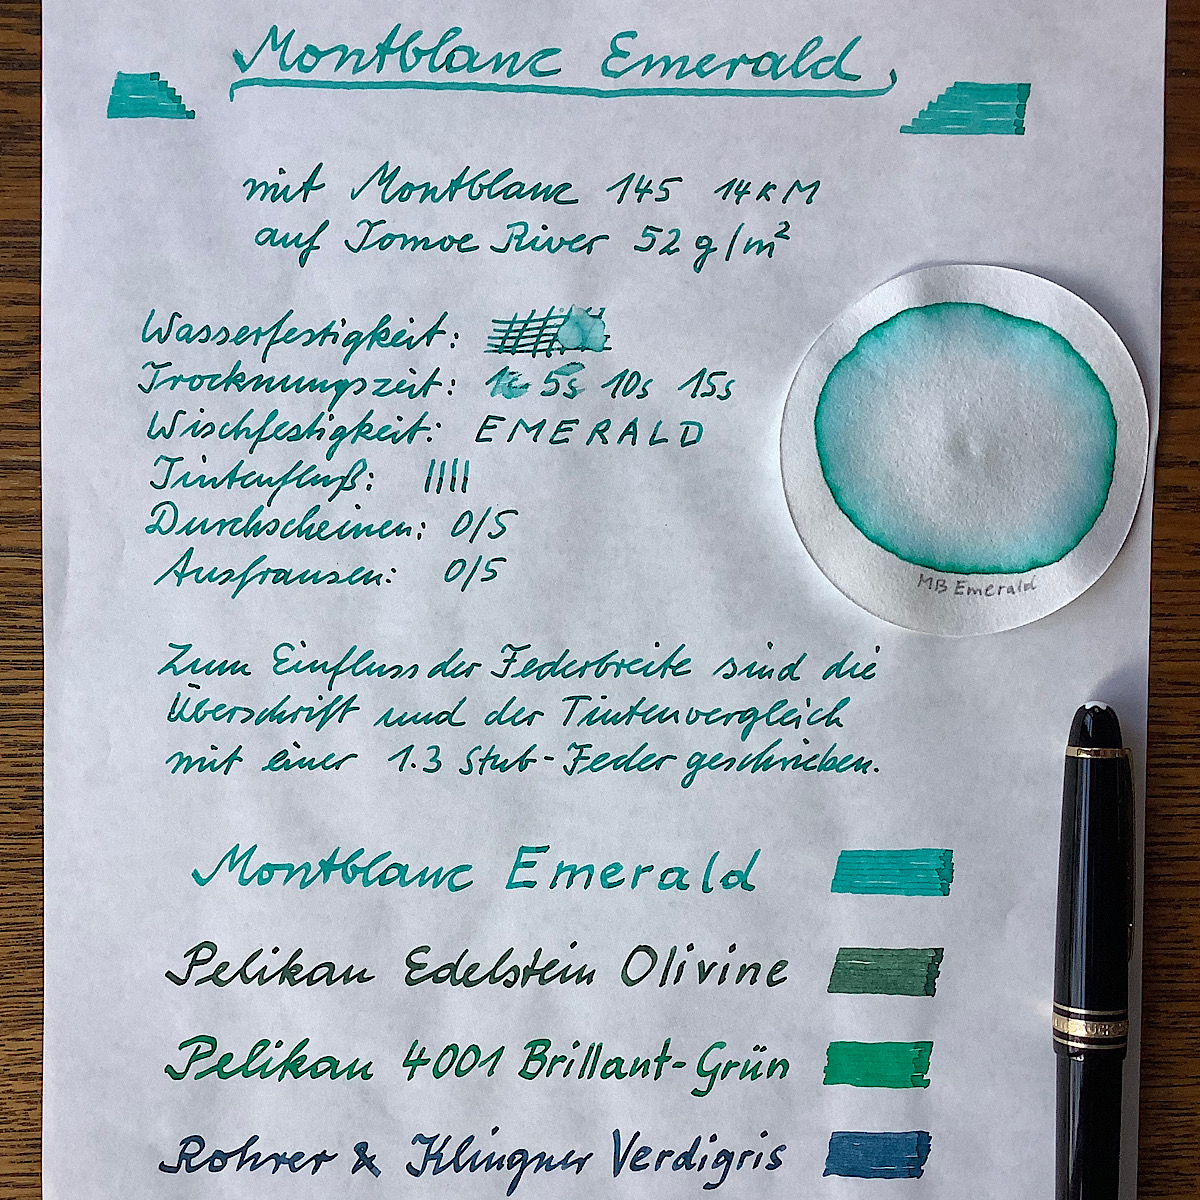 Montblanc Emerald
mit Montblanc 145 14K M
auf Tomoe River 52 g/m²
Wasserfestigkeit:
Trocknungszeit: 1s 5s 10s 15s
Wischfestigkeit: EMERALD
Tintenfluß: ||||
Durchscheinen: 0/5
Ausfransen: 0/5
MB Emerald
Zum Einfluss der Federbreite sind die
Überschrift und der Tintenvergleich
mit einer 1.3 Stub-Feder geschrieben.
Montblanc Emerald
Pelikan Edelstein Olivine
Pelikan 4001 Brillant-Grün
Rohrer & Klingner Verdigris